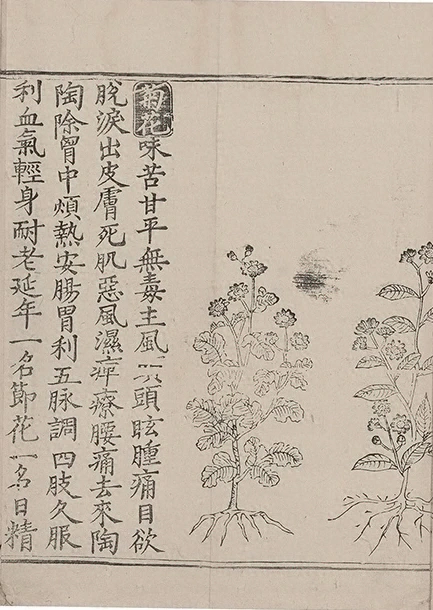 菊花味苦甘平無毒主風頭眩腫痛目欲
脫淚出皮膚死肌惡風濕痺療腰痛去來陶
陶除胷中煩熱安腸胃利五脉調四肢久服
利血氣輕身耐老延年一名節花一名日精